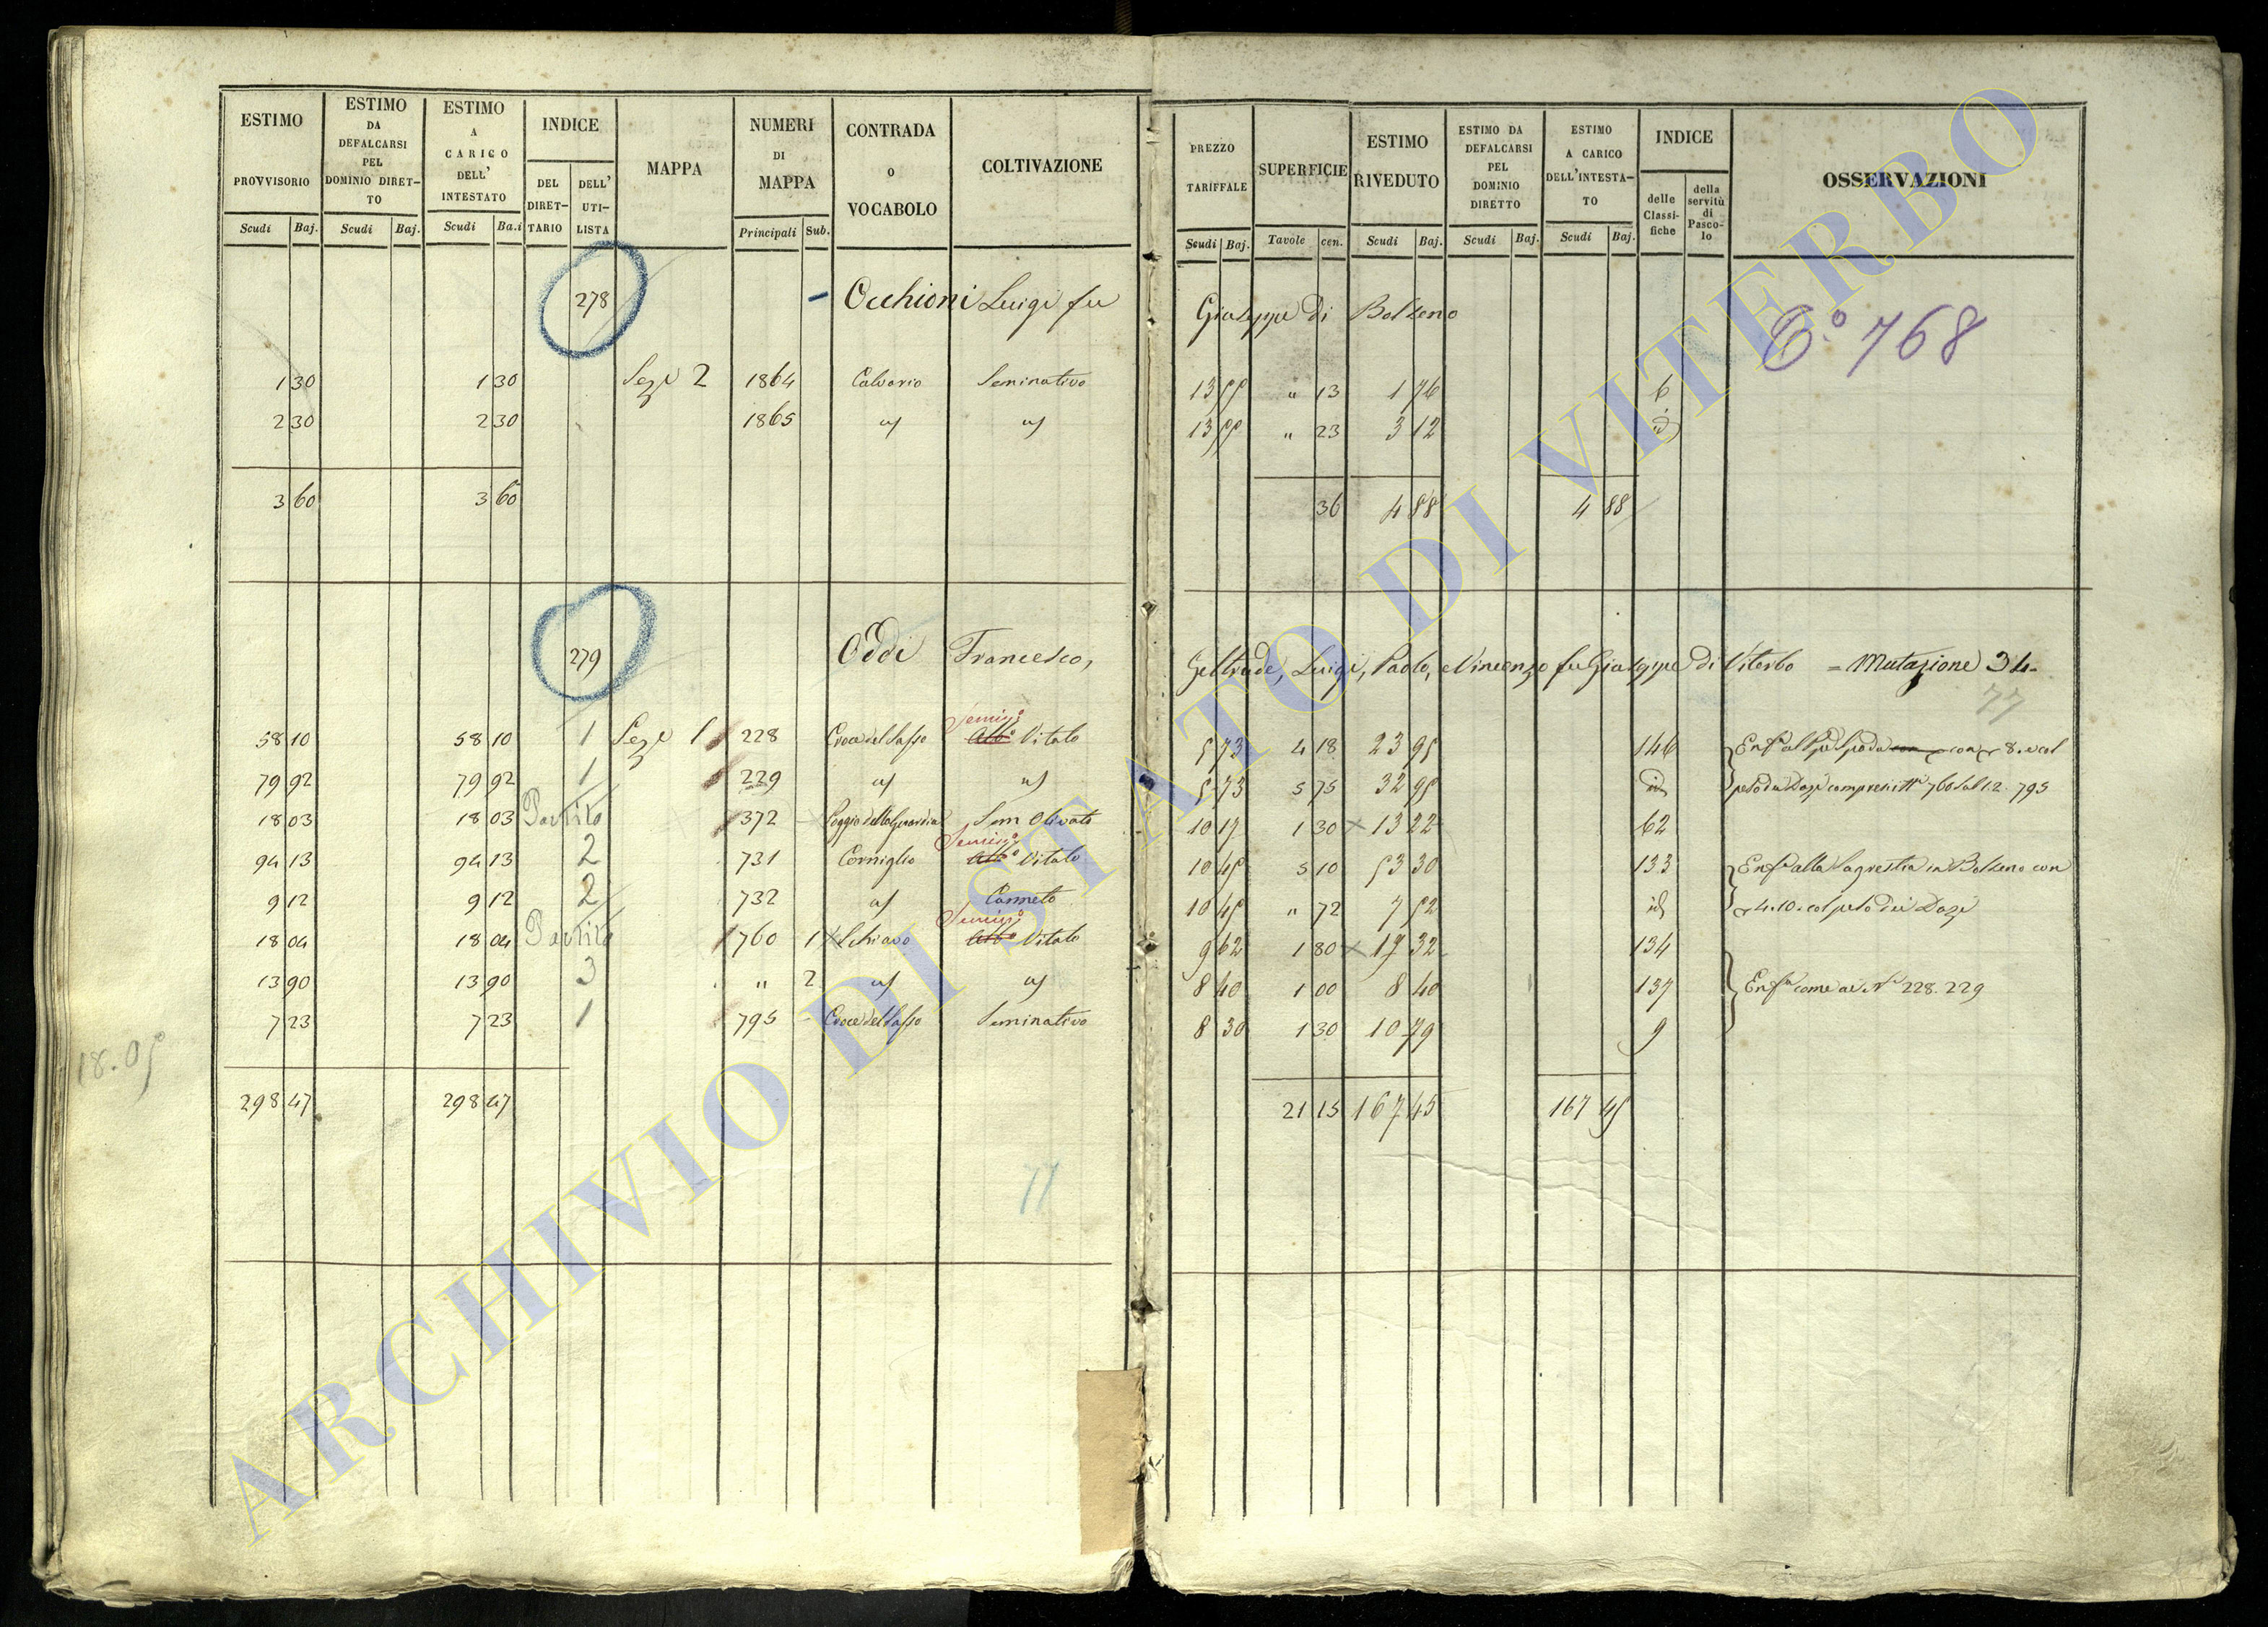 ESTIMO PROVVISORIO Scudi Baj.
ESTIMO DA DEFALCARSI PEL DOMINIO DIRET-TO Scudi Baj.
ESTIMO A CARICO DELL' INTESTATO Scudi Ba.i
INDICE DEL DIRET-TARIO DELL' UTI-LISTA
MAPPA
NUMERI DI MAPPA Principali Sub.
CONTRADA o VOCABOLO
COLTIVAZIONE
PREZZO TARIFFALE Scudi Baj.
SUPERFICIE Tavole cen.
ESTIMO RIVEDUTO Scudi Baj.
ESTIMO DA DEFALCARSI PEL DOMINIO DIRETTO Scudi Baj.
ESTIMO A CARICO DELL'INTESTA-TO Scudi Baj.
INDICE delle Classi-fiche della servitù di Pasco-lo
OSSERVAZIONI
278 Occhioni Luigi fu Giuseppe di Bolseno
C.° 768
1 30 1 30 Sez.e 2 1864 Calvario Seminativo 13 55 " 13 1 76 6
2 30 2 30 1865 " " 13 55 " 23 3 12 id
3 60 3 60 36 4 88 4 88
279 Oddi Francesco, Geltrude, Luigi, Paolo, e Vincenzo fu Giuseppe di Viterbo = Mutazione 34
77
58 10 58 10 1 Sez.e 1 228 Croce del Sasso Semin.o Alb.o Vitato 5 73 4 18 23 95 146
79 92 79 92 1 229 " " 5 73 5 75 32 95 id
18 03 18 03 Partita 372 Poggio della Guardia Sem Olivato 10 17 1 30 13 22 62
94 13 94 13 2 731 Corniglio Semin.o Alb.o Vitato 10 45 5 10 53 30 133 Enf.a alla Sagrestia in Bolseno con
9 12 9 12 2 732 " Canneto 10 45 " 72 7 52 id 4.10. col peso dei Dazi
18 04 18 04 Partita 760 1 Schiavo Semin.o Alb.o Vitato 9 62 1 80 17 32 134
13 90 13 90 3 " 2 " " 8 40 1 00 8 40 137 Enf.a come ai N.i 228. 229
7 23 7 23 1 795 Croce del Sasso Seminativo 8 30 1 30 10 79 9
18.05
298 47 298 47 21 15 167 45 167 45
77
ARCHIVIO DI STATO DI VITERBO